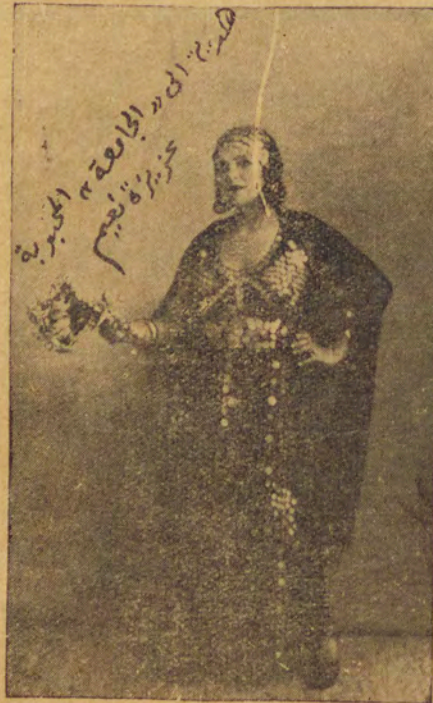 هدية الى " الجامعة " المحبوبة
عزيزة نعيم